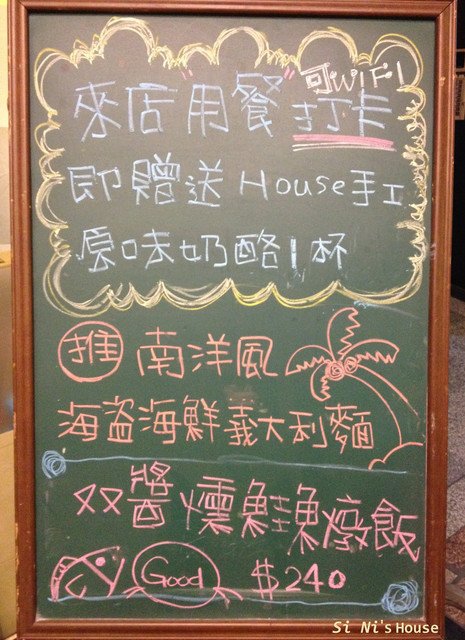 可WIFI
來店"用餐"打卡
即贈送House手工
原味奶酪1杯
推 南洋風
海盜海鮮義大利麵
双醬燻鮭魚燉飯
Good $240
Si Ni's House